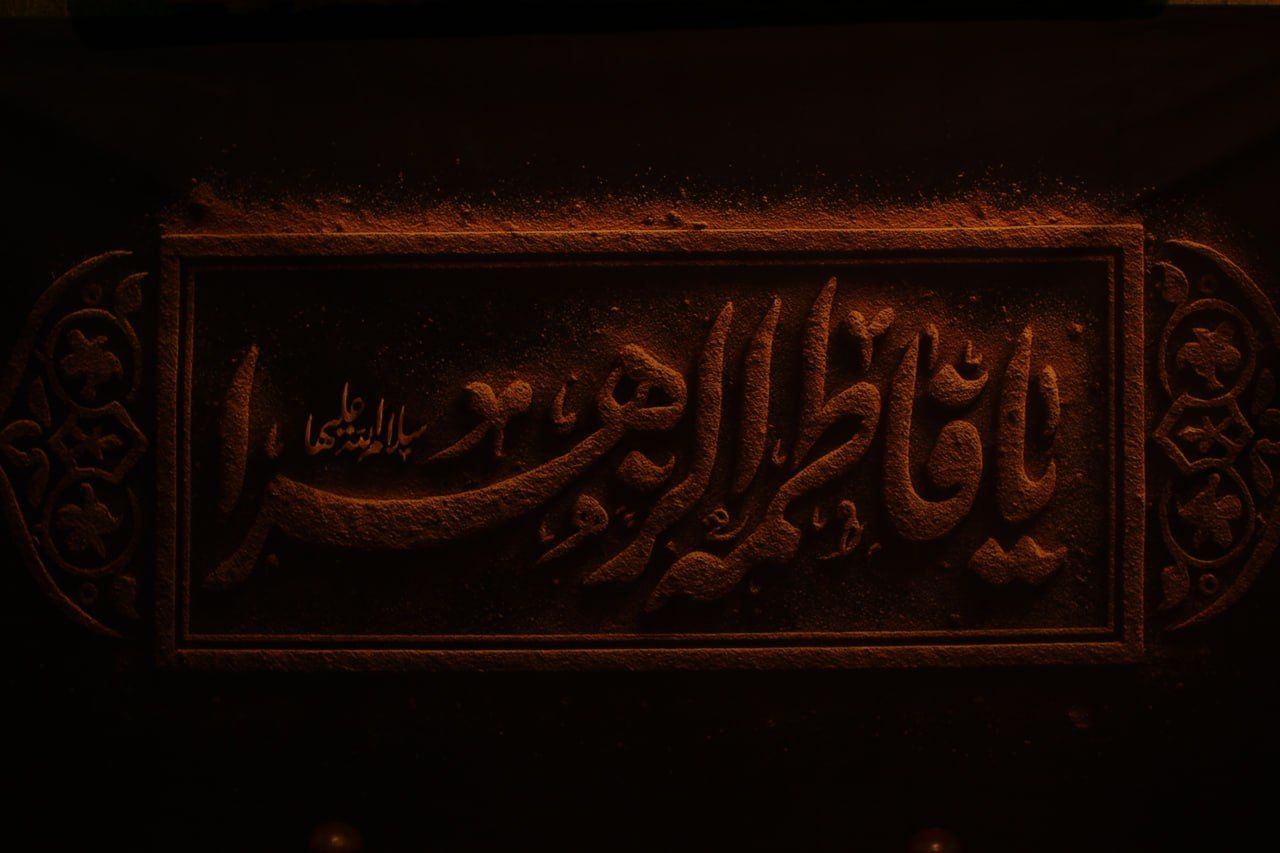 یا فاطمة الزهرا
سلام الله علیها